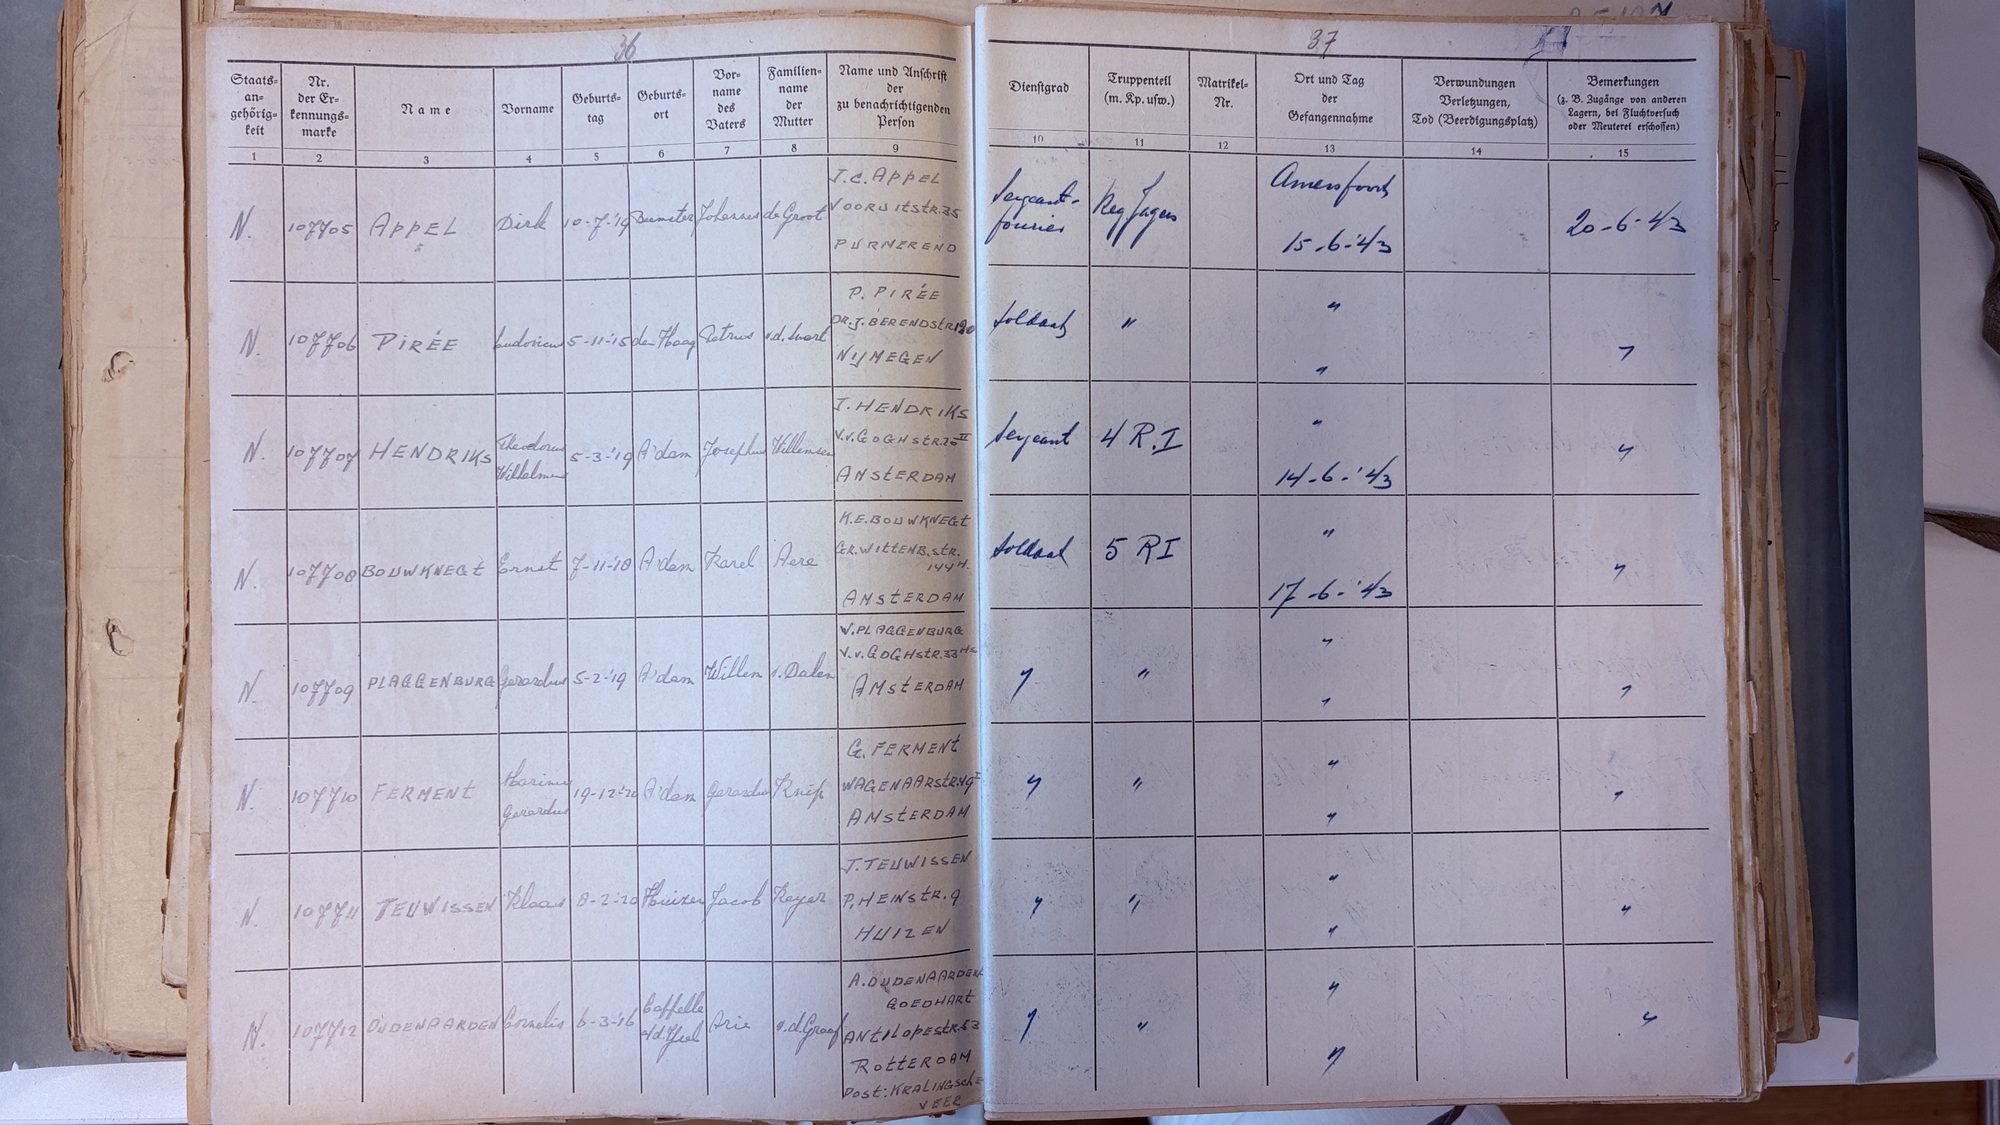 36
Staats-
an-
gehörig-
keit
Nr.
der Er-
kennungs-
marke
Name
Vorname
Geburts-
tag
Geburts-
ort
Vor-
name
des
Vaters
Familien-
name
der
Mutter
Name und Anschrift
der
zu benachrichtigenden
Person
1 2 3 4 5 6 7 8 9
N. 107705 APPEL Dirk 10-7-'19 Beemster Johannes de Groot
J.C. APPEL
VOORUITSTR.35
PURMEREND
N. 107706 PIRÉE Ludovicus 5-11-'15 den Haag Petrus
P. PIRÉE
DR.J.BERENDSTR120
NIJMEGEN
N. 107707 HENDRIKS Theodorus Wilhelmus 5-3-'19 A'dam Josephus Willemsen
J. HENDRIKS
V.v.GOGHSTR.20 II
AMSTERDAM
N. 107708 BOUWKNEGT Ernst 7-11-'18 A'dam Karel Aere
K.E.BOUWKNEGT
GR.WITTENB.STR.
144 H.
AMSTERDAM
N. 107709 PLAGGENBURG Gerardus 5-2-'19 A'dam Willem v.Dalen
W.PLAGGENBURG
V.v.GOGHSTR.33 HS
AMSTERDAM
N. 107710 FERMENT Marinus Gerardus 19-12-'20 A'dam Gerardus Knip
G. FERMENT
WAGENAARSTR.49 I
AMSTERDAM
N. 107711 TEUWISSEN Klaas 8-2-'20 Huizen Jacob Keyer
J. TEUWISSEN
P.HEINSTR.9
HUIZEN
N. 107712 OUDENAARDEN Cornelis 6-3-'16 Cappelle a/d.IJsel Arie v.d.Graaf
A.OUDENAARDEN-
GOEDHART
ANTILOPESTR.53
ROTTERDAM
POST:KRALINGSCHE
VEER
37
Dienstgrad
Truppenteil
(m. Kp. usw.)
Matrikel-
Nr.
Ort und Tag
der
Gefangennahme
Verwundungen
Verletzungen,
Tod (Beerdigungsplatz)
Bemerkungen
(z. B. Zugänge von anderen
Lagern, bei Fluchtversuch
oder Meuterei erschossen)
10 11 12 13 14 15
Sergeant-
fourier
Reg Jagers
Amersfoort
15-6-'43
20-6-'43
Soldaat " " " "
Sergeant 4 R.I "
14-6-'43 "
Soldaat 5 RI "
17-6-'43 "
" " " " "
" " " " "
" " " " "
" " " " "